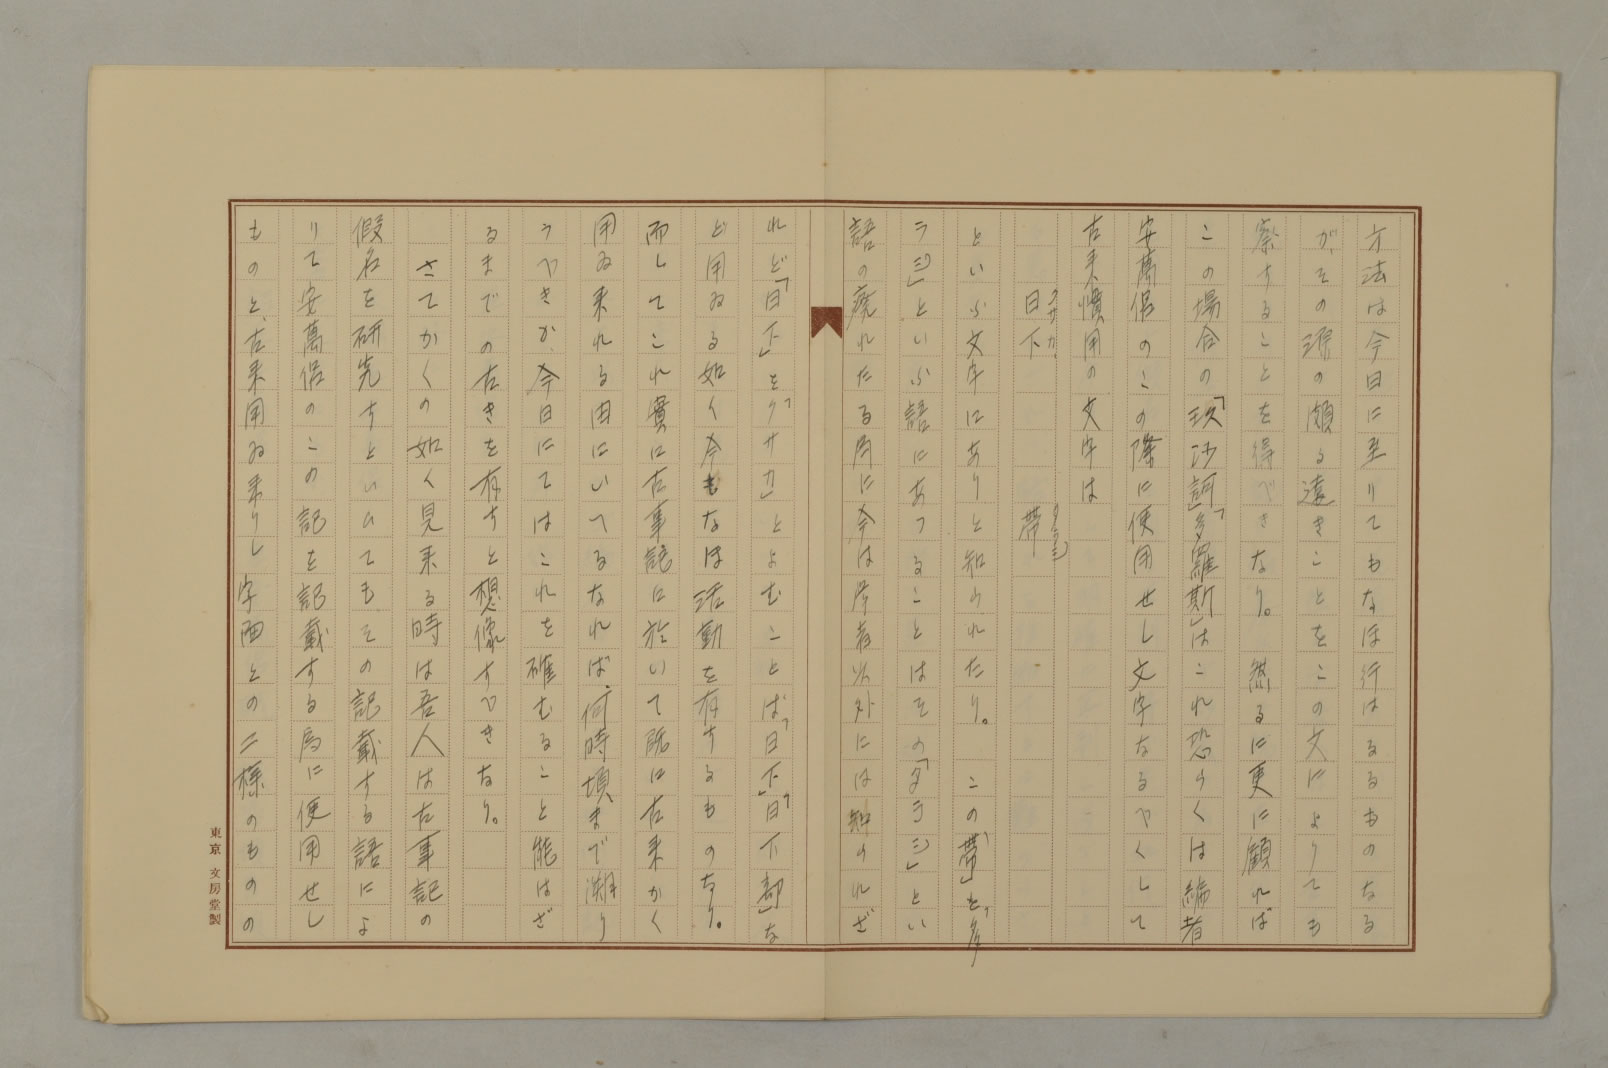 方法は今日に至りてもなほ行はるるものなる
が、その源の頗る遠きことをこの文によりても
察することを得べきなり。然るに更に顧れば
この場合の「玖沙訶」「多羅斯」はこれ恐らくは編者
安萬侶のこの際に使用せし文字なるべくして
古来慣用の文字は
日下 帯
クサカ タラシ
といふ文字にありと知られたり。この「帯」を「多
ラシ」といふ語にあつることはその「タラシ」とい
語の廃れたる為に今は学者以外には知られざ
れど「日下」を「クサカ」とよむことば「日下」「日下部」な
ど用ゐる如く今もなほ活動を有するものなり。
而してこれ實に古事記に於いて既に古来かく
用ゐ来れる由にいへるなれば、何時頃まで溯り
うべきか、今日にてはこれを確むること能はざ
るまでの古きを有すと想像すべきなり。
さてかくの如く見来る時は吾人は古事記の
假名を研究すといひてもその記載する語によ
りて安萬侶のこの記を記載する為に使用せし
ものと、古来用ゐ来りし字面との二様のものの
東京 文房堂製